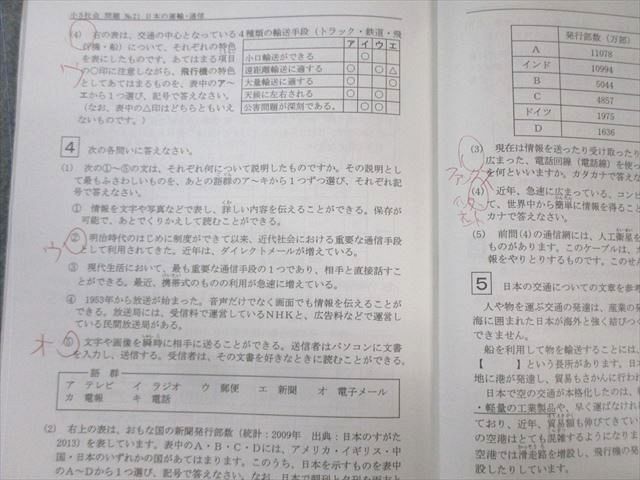 小5社会 問題 №21 日本の運輸・通信
(4) 右の表は、交通の中心となっている4種類の輸送手段(トラック・鉄道・飛
行機・船)について、それぞれの特色
を表にしたものです。あてはまる項目
の○印に注意しながら、飛行機の特色
としてあてはまるものを、表中のア〜
エから1つ選び、記号で答えなさい。
(なお、表中の△印はどちらともいえ
ないものです。)
ア イ ウ エ
小口輸送ができる ○
遠距離輸送に適する ○ ○ △
大量輸送に適する ○ ○
天候に左右される ○ ○
公害問題が深刻である。 ○ ○
ウ
4 次の各問いに答えなさい。
(1) 次の①〜⑤の文は、それぞれ何について説明したものですか。その説明とし
て最もふさわしいものを、あとの語群のア〜キから1つずつ選び、それぞれ記
号で答えなさい。
① 情報を文字や写真などで表し、詳しい内容を伝えることができる。保存が
可能で、あとでくりかえして読むことができる。
ウ
② 明治時代のはじめに制度ができて以来、近代社会における重要な通信手段
として利用されてきた。近年は、ダイレクトメールが増えている。
③ 現代生活において、最も重要な通信手段の1つであり、相手と直接話すこ
とができる。最近、携帯式のものの利用が急速に増えている。
④ 1953年から放送が始まった。音声だけでなく画面でも情報を伝えることが
できる。放送局には、受信料で運営しているNHKと、広告料などで運営し
ている民間放送局がある。
オ
⑤ 文字や画像を瞬時に相手に送ることができる。送信者はパソコンに文書
を入力し、送信する。受信者は、その文書を好きなときに読むことができる。
語群
ア テレビ イ ラジオ ウ 郵便 エ 新聞 オ 電子メール
カ 電報 キ 電話
(2) 右上の表は、おもな国の新聞発行部数(統計:2009年 出典:日本のすがた
2013)を表しています。表中のA・B・C・Dには、アメリカ・イギリス・中
国・日本のいずれかの国があてはまります。このうち、日本を示すものを表中
のA〜Dから1つ選び、記号で答えなさい。
発行部数(万部)
A 11078
インド 10994
B 5044
C 4857
ドイツ 1975
D 1636
(3) 現在は情報を送ったり受け取ったり
広まった、電話回線(電話線)を使っ
を何といいますか。カタカナで答えな
(4) 近年、急速に広まっている、コンピ
て、世界中から簡単に情報を得ること
カナで答えなさい。
(5) 前問(4)の通信網には、人工衛星を
ものがあります。このケーブルは、
報をやりとりするものです。このせん
5 日本の交通についての文章を参考
人や物を運ぶ交通の発達は、産業
海に囲まれた日本が海外と強く結びつ
できません。
船を利用して物を輸送することには、
【 】という長所があります。日
地に港が発達し、貿易もさかんに行わ
日本で空の交通が本格化したのは、
・軽量の工業製品や、早く運ばなけれ
ており、近年、貿易額も伸びてきてい
の空港はとても混雑するようになりま
空港では滑走路を増設し、発着の
設したりしています。